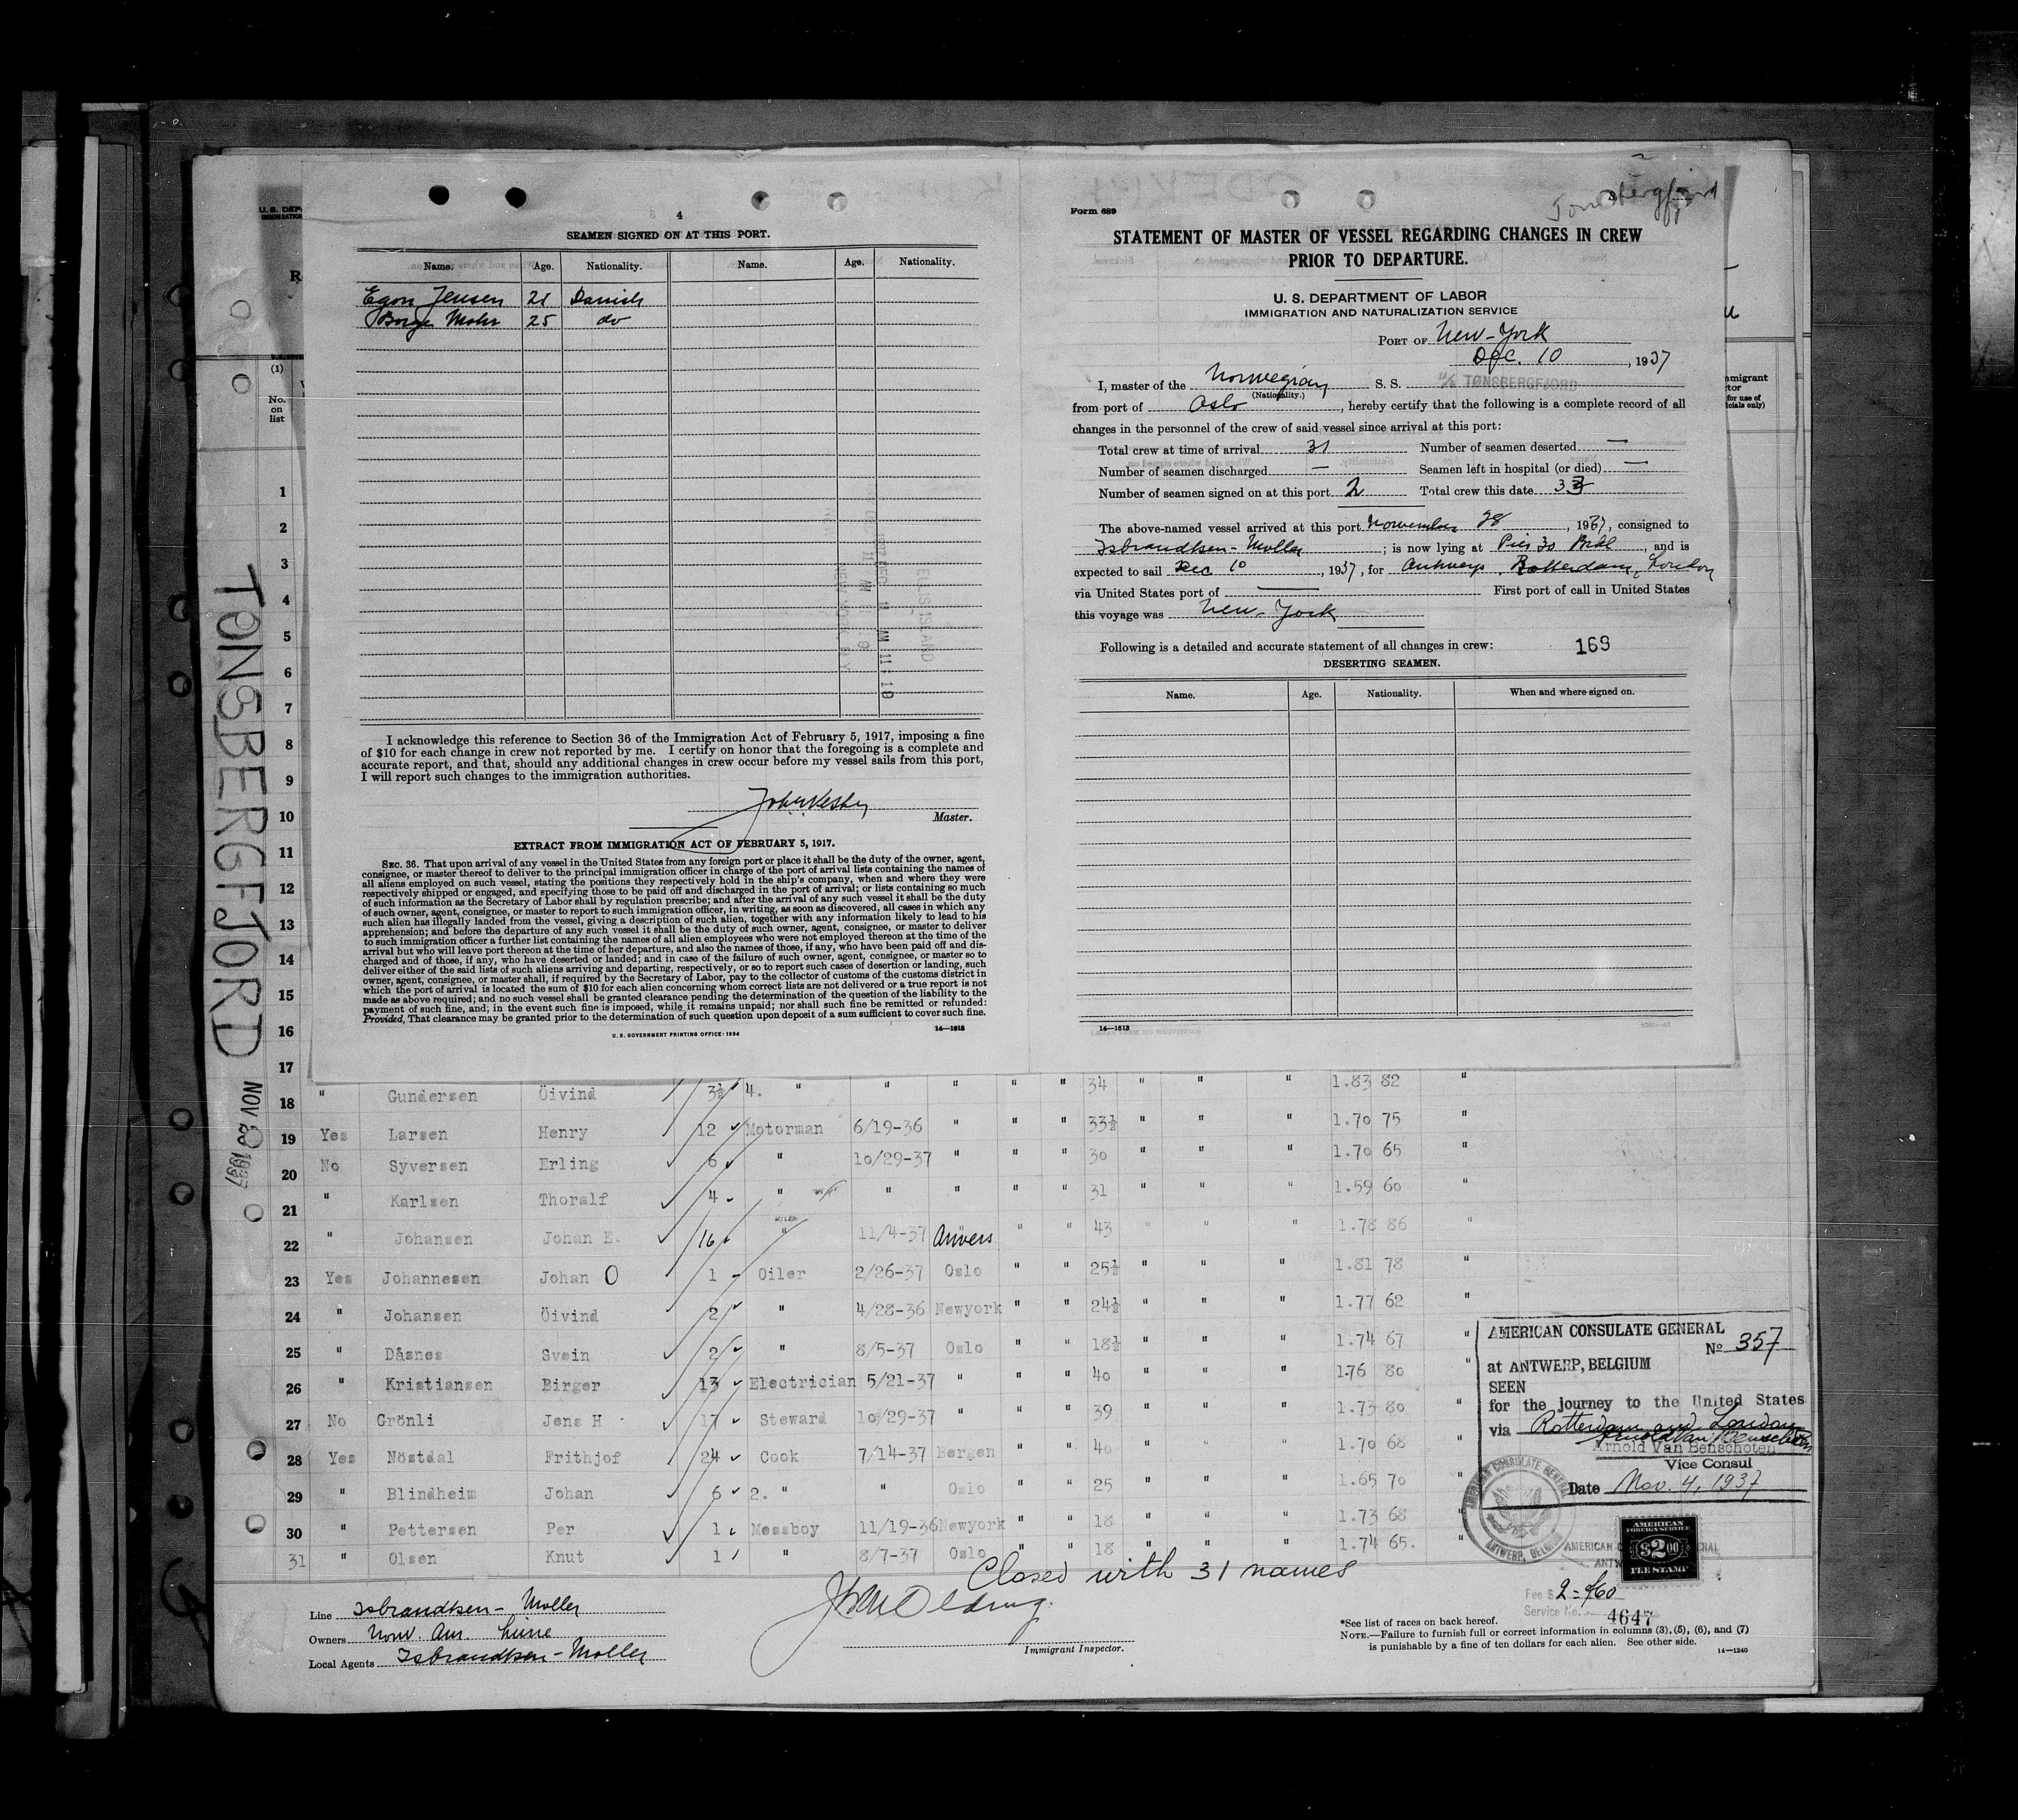 4
SEAMEN SIGNED ON AT THIS PORT.
Name. Age. Nationality. Name. Age. Nationality.
Egon Jensen 21 Danish
Borge Mohr 25 do
I acknowledge this reference to Section 36 of the Immigration Act of February 5, 1917, imposing a fine
of $10 for each change in crew not reported by me. I certify on honor that the foregoing is a complete and
accurate report, and that, should any additional changes in crew occur before my vessel sails from this port,
I will report such changes to the immigration authorities.
Master.
EXTRACT FROM IMMIGRATION ACT OF FEBRUARY 5, 1917.
SEC. 36. That upon arrival of any vessel in the United States from any foreign port or place it shall be the duty of the owner, agent,
consignee, or master thereof to deliver to the principal immigration officer in charge of the port of arrival lists containing the names of
all aliens employed on such vessel, stating the positions they respectively hold in the ship's company, when and where they were
respectively shipped or engaged, and specifying those to be paid off and discharged in the port of arrival; or lists containing so much
of such information as the Secretary of Labor shall by regulation prescribe; and after the arrival of any such vessel it shall be the duty
of such owner, agent, consignee, or master to report to such immigration officer, in writing, as soon as discovered, all cases in which any
such alien has illegally landed from the vessel, giving a description of such alien, together with any information likely to lead to his
apprehension; and before the departure of any such vessel it shall be the duty of such owner, agent, consignee, or master to deliver
to such immigration officer a further list containing the names of all alien employees who were not employed thereon at the time of the
arrival but who will leave port thereon at the time of her departure, and also the names of those, if any, who have been paid off and dis-
charged and of those, if any, who have deserted or landed; and in case of the failure of such owner, agent, consignee, or master so to
deliver either of the said lists of such aliens arriving and departing, respectively, or so to report such cases of desertion or landing, such
owner, agent, consignee, or master shall, if required by the Secretary of Labor, pay to the collector of customs of the customs district in
which the port of arrival is located the sum of $10 for each alien concerning whom correct lists are not delivered or a true report is not
made as above required; and no such vessel shall be granted clearance pending the determination of the question of the liability to the
payment of such fine, and, in the event such fine is imposed, while it remains unpaid; nor shall such fine be remitted or refunded:
Provided, That clearance may be granted prior to the determination of such question upon deposit of a sum sufficient to cover such fine.
U. S. GOVERNMENT PRINTING OFFICE: 1934 14—1613
Form 689
Tonsbergfjord
STATEMENT OF MASTER OF VESSEL REGARDING CHANGES IN CREW
PRIOR TO DEPARTURE.
U. S. DEPARTMENT OF LABOR
IMMIGRATION AND NATURALIZATION SERVICE
PORT OF New-York
Dec. 10, 1937
I, master of the Norwegian S. S. M/S TØNSBERGFJORD
(Nationality.)
from port of Oslo, hereby certify that the following is a complete record of all
changes in the personnel of the crew of said vessel since arrival at this port:
Total crew at time of arrival 31 Number of seamen deserted —
Number of seamen discharged — Seamen left in hospital (or died) —
Number of seamen signed on at this port 2 Total crew this date 33
The above-named vessel arrived at this port November 28, 1937, consigned to
Isbrandtsen-Moller; is now lying at Pier 30 Bkl, and is
expected to sail Dec 10, 1937, for Antwerp, Rotterdam, London
via United States port of — First port of call in United States
this voyage was New-York
Following is a detailed and accurate statement of all changes in crew: 169
DESERTING SEAMEN.
Name. Age. Nationality. When and where signed on.
14—1613
TONSBERGFJORD
NOV 28 1937
(1)
No.
on
list
1
2
3
4
5
6
7
8
9
10
11
12
13
14
15
16
17
18 " Gundersen Öivind 3½ 4. " " " " " 34 " " " 1.83 82 "
19 Yes Larsen Henry 12 Motorman 6/19-36 " " " 33½ " " " 1.70 75 "
20 No Syversen Erling 6 " 10/29-37 " " " 30 " " " 1.70 65 "
21 " Karlsen Thoralf 4 " " " " " 31 " " " 1.59 60 "
22 " Johansen Johan E. 16 " 11/4-37 Anvers " " 43 " " " 1.78 86 "
23 Yes Johannesen Johan O 1 Oiler 2/26-37 Oslo " " 25½ " " " 1.81 78 "
24 " Johansen Öivind 2 " 4/28-36 Newyork " " 24½ " " " 1.77 62 "
25 " Dåsnes Svein 2 " 8/5-37 Oslo " " 18½ " " " 1.74 67 "
26 " Kristiansen Birger 13 Electrician 5/21-37 " " " 40 " " " 1.76 80 "
27 No Grönli Jens H 17 Steward 10/29-37 " " " 39 " " " 1.73 80 "
28 Yes Nöstdal Frithjof 24 Cook 7/14-37 Bergen " " 40 " " " 1.70 68 "
29 " Blindheim Johan 6 2. " " Oslo " " 25 " " " 1.65 70 "
30 " Pettersen Per 1 Messboy 11/19-36 Newyork " " 18 " " " 1.73 68 "
31 " Olsen Knut 1 " 8/7-37 Oslo " " 18 " " " 1.74 65. "
Closed with 31 names
Line Isbrandtsen-Moller
Owners Norw. Am. Linie
Local Agents Isbrandtsen-Moller
Immigrant Inspector.
AMERICAN CONSULATE GENERAL
No 357
at ANTWERP, BELGIUM
SEEN
for the journey to the United States
via Rotterdam and London
Arnold Van Benschoten
Vice Consul
Date Nov. 4, 1937
AMERICAN CONSULATE GENERAL
ANTWERP, BELGIUM
AMERICAN
FOREIGN SERVICE
$2.00
FEE STAMP
Fee $ 2=
Service No. 4647
*See list of races on back hereof.
NOTE.—Failure to furnish full or correct information in columns (3), (5), (6), and (7)
is punishable by a fine of ten dollars for each alien. See other side.
14—1240